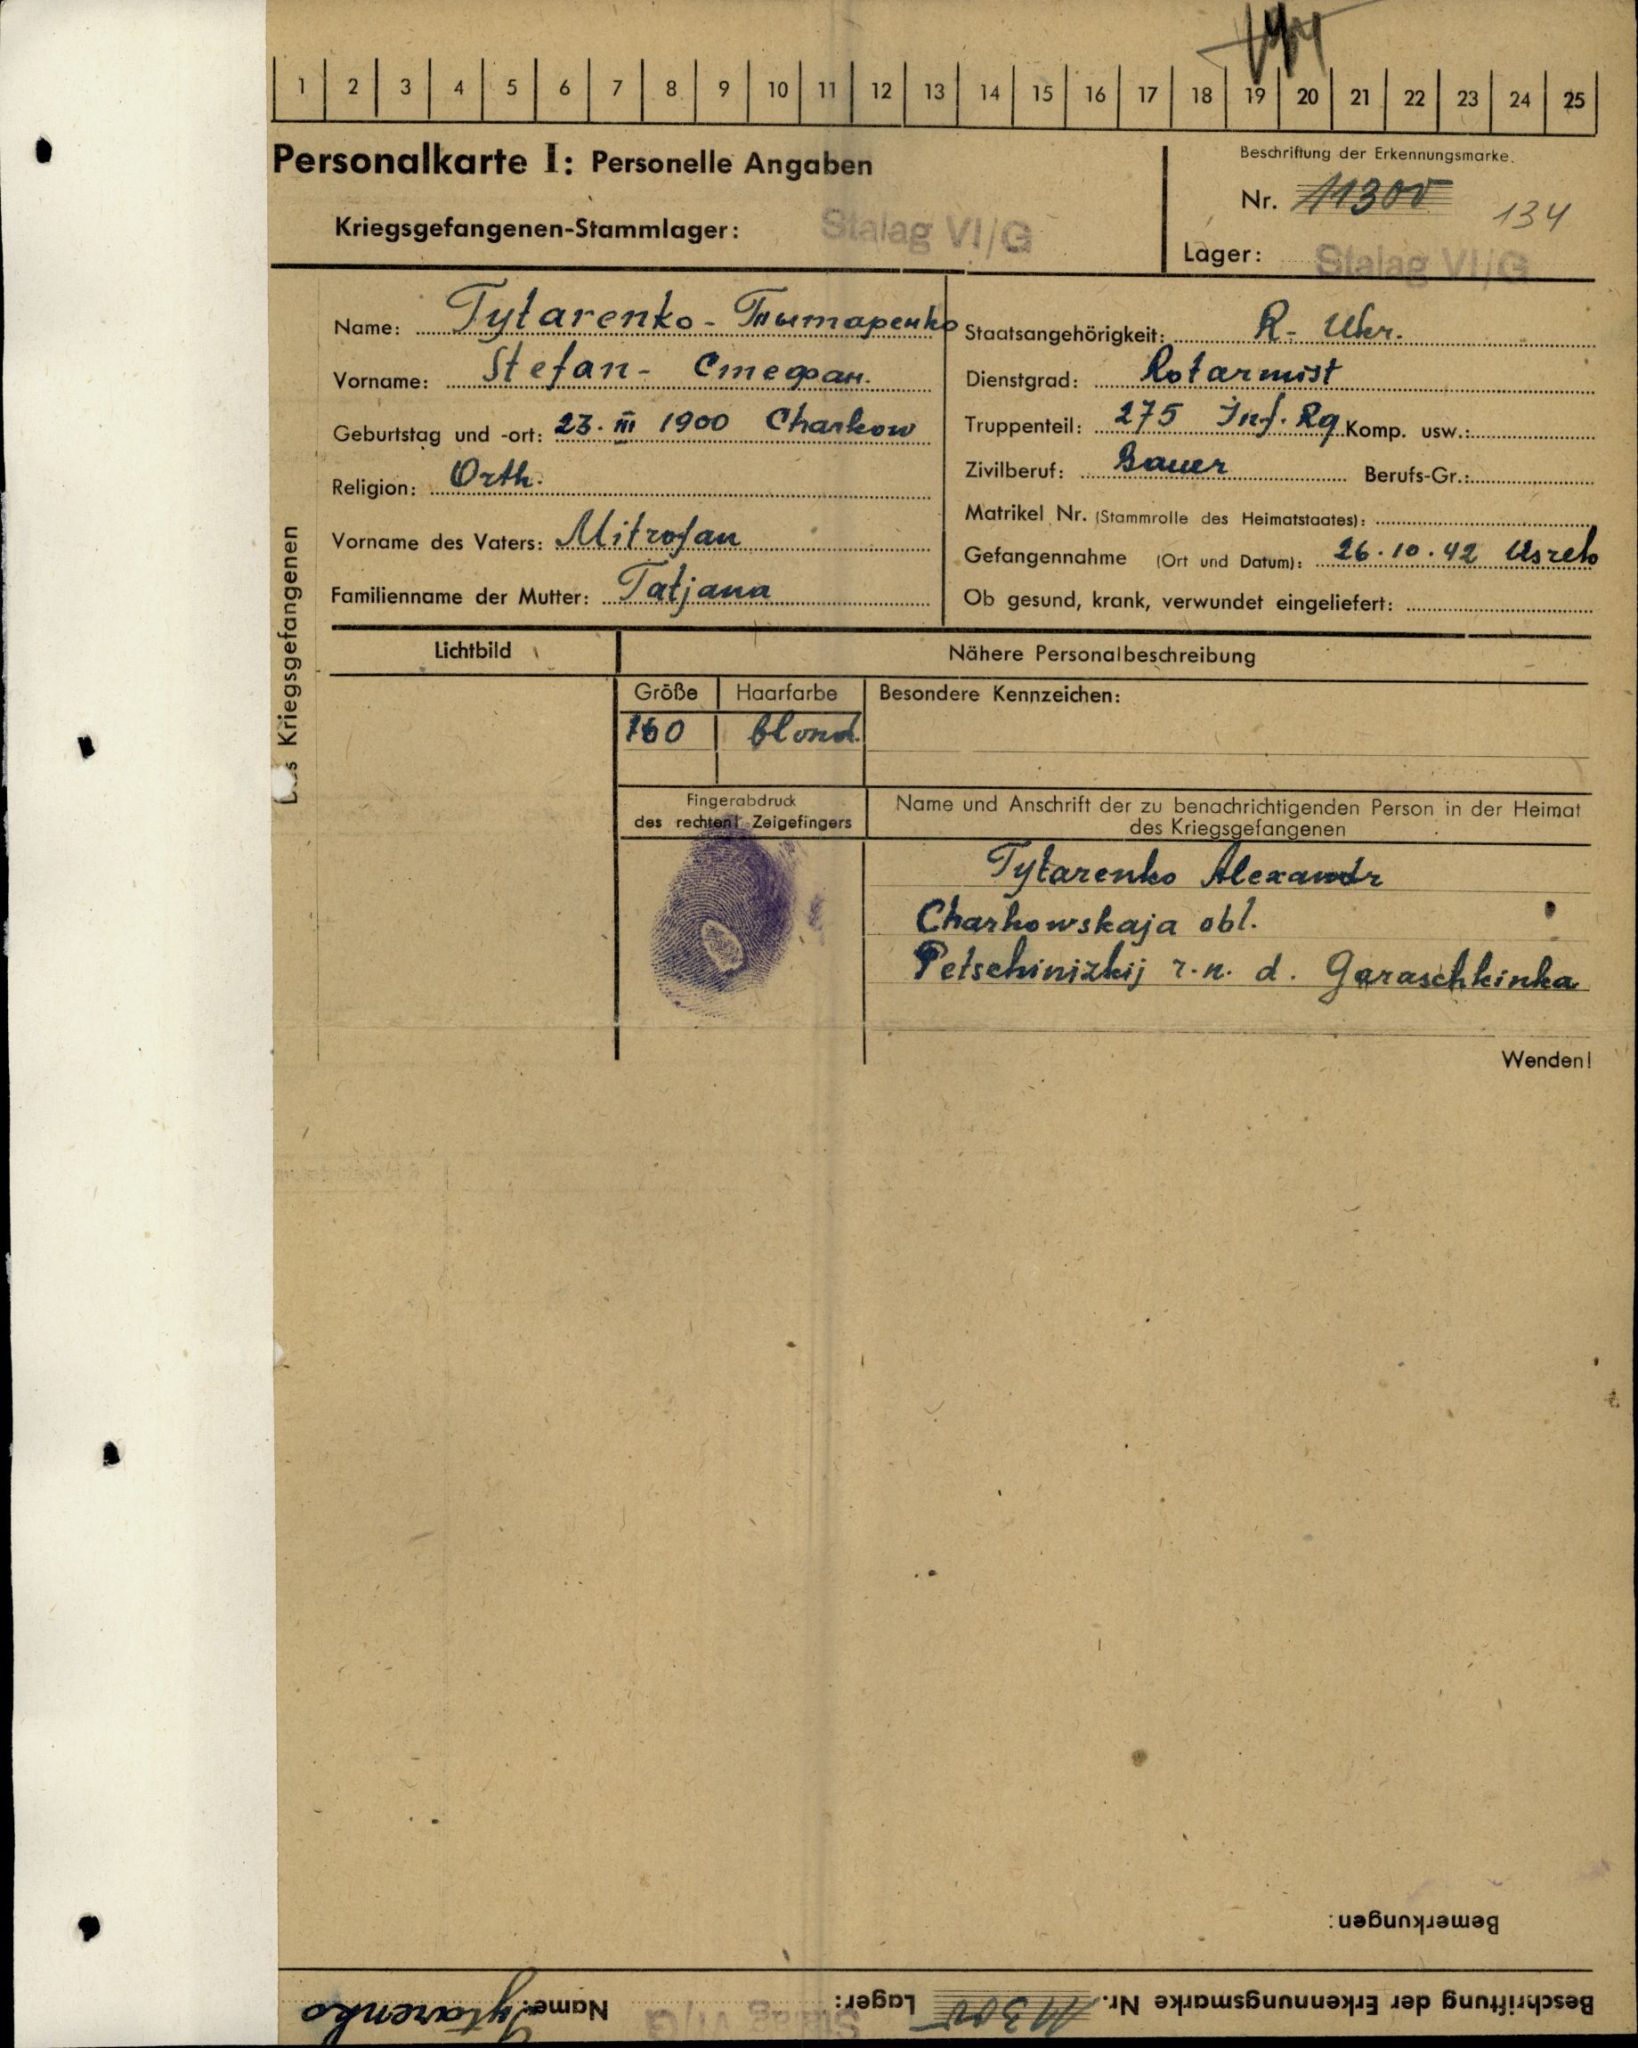 1 2 3 4 5 6 7 8 9 10 11 12 13 14 15 16 17 18 19 20 21 22 23 24 25
Personalkarte I: Personelle Angaben
Beschriftung der Erkennungsmarke.
Nr. 11300 134
Kriegsgefangenen-Stammlager: Stalag VI/G
Lager: Stalag VI/G
Name: Tytarenko - Тытаренко
Vorname: Stefan - Стефан.
Geburtstag und -ort: 23. III 1900 Charkow
Religion: Orth.
Vorname des Vaters: Mitrofan
Familienname der Mutter: Tatjana
Staatsangehörigkeit: R - Ukr.
Dienstgrad: Rotarmist
Truppenteil: 275 Inf. Rg Komp. usw.:
Zivilberuf: Bauer Berufs-Gr.:
Matrikel Nr. (Stammrolle des Heimatstaates):
Gefangennahme (Ort und Datum): 26.10.42
Ob gesund, krank, verwundet eingeliefert:
Des Kriegsgefangenen
Lichtbild
Nähere Personalbeschreibung
Größe Haarfarbe Besondere Kennzeichen:
160 blond.
Fingerabdruck
des rechten! Zeigefingers
Name und Anschrift der zu benachrichtigenden Person in der Heimat
des Kriegsgefangenen
Tytarenko Alexandr
Charkowskaja obl.
Petschinizkij r.n. d. Garaschkinka
Wenden!
Bemerkungen:
Beschriftung der Erkennungsmarke Nr. 11300 Lager: Stalag VI/G Name: Tytarenko